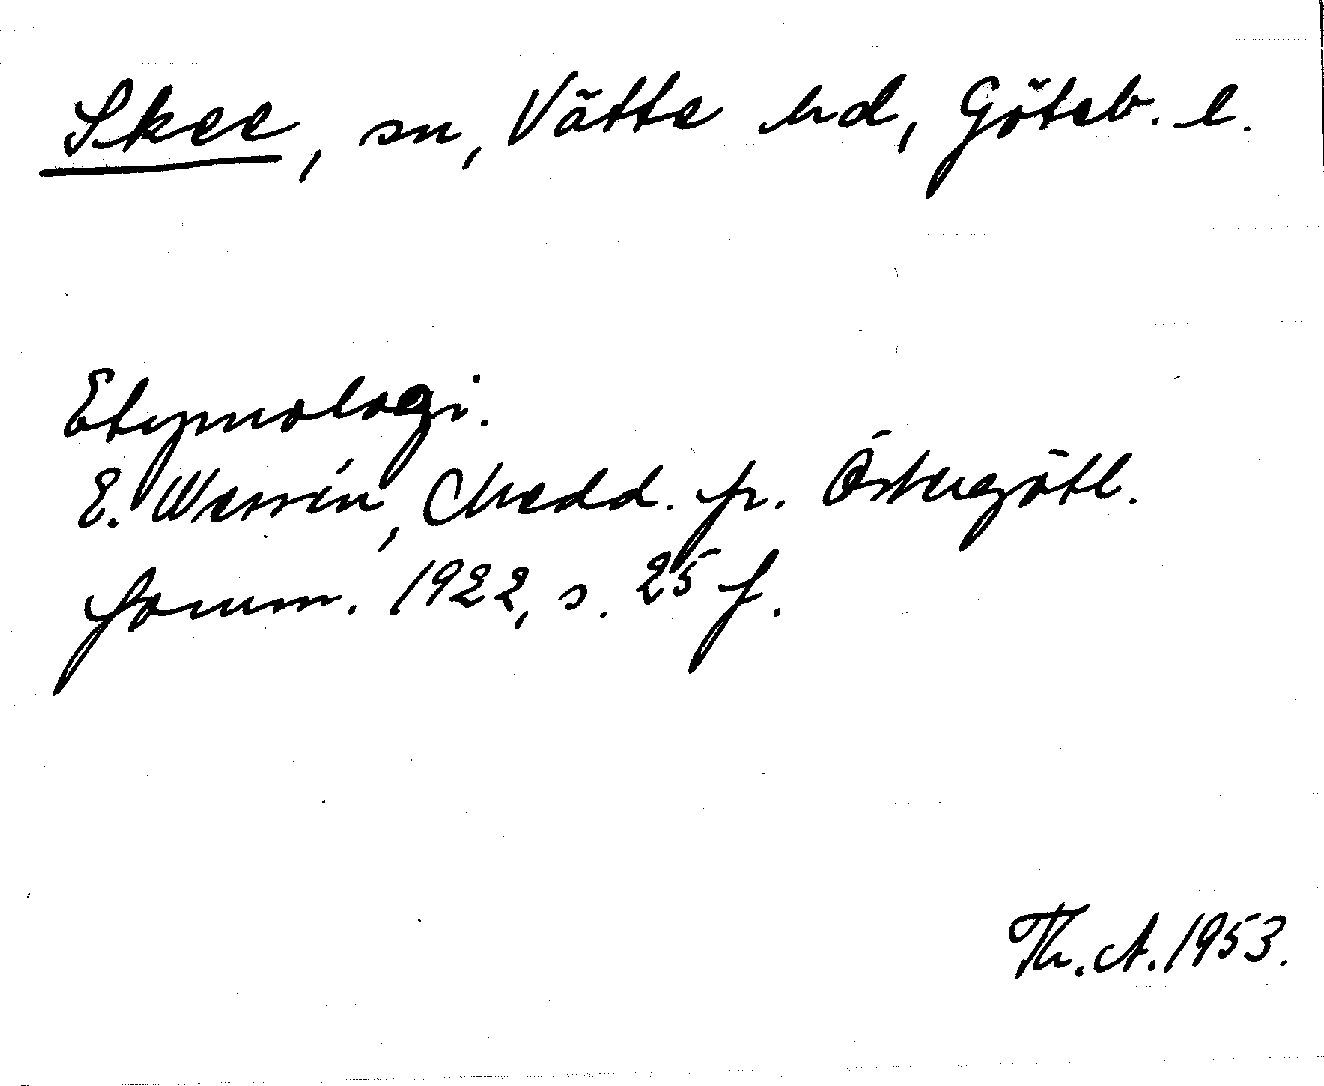 Skee, sn, Vätte hd, Göteb. l.
Etymologi.
E. Wessén, Medd. fr. Östergötl.
fornm. 1922, s. 25 f.
Th. A. 1953.